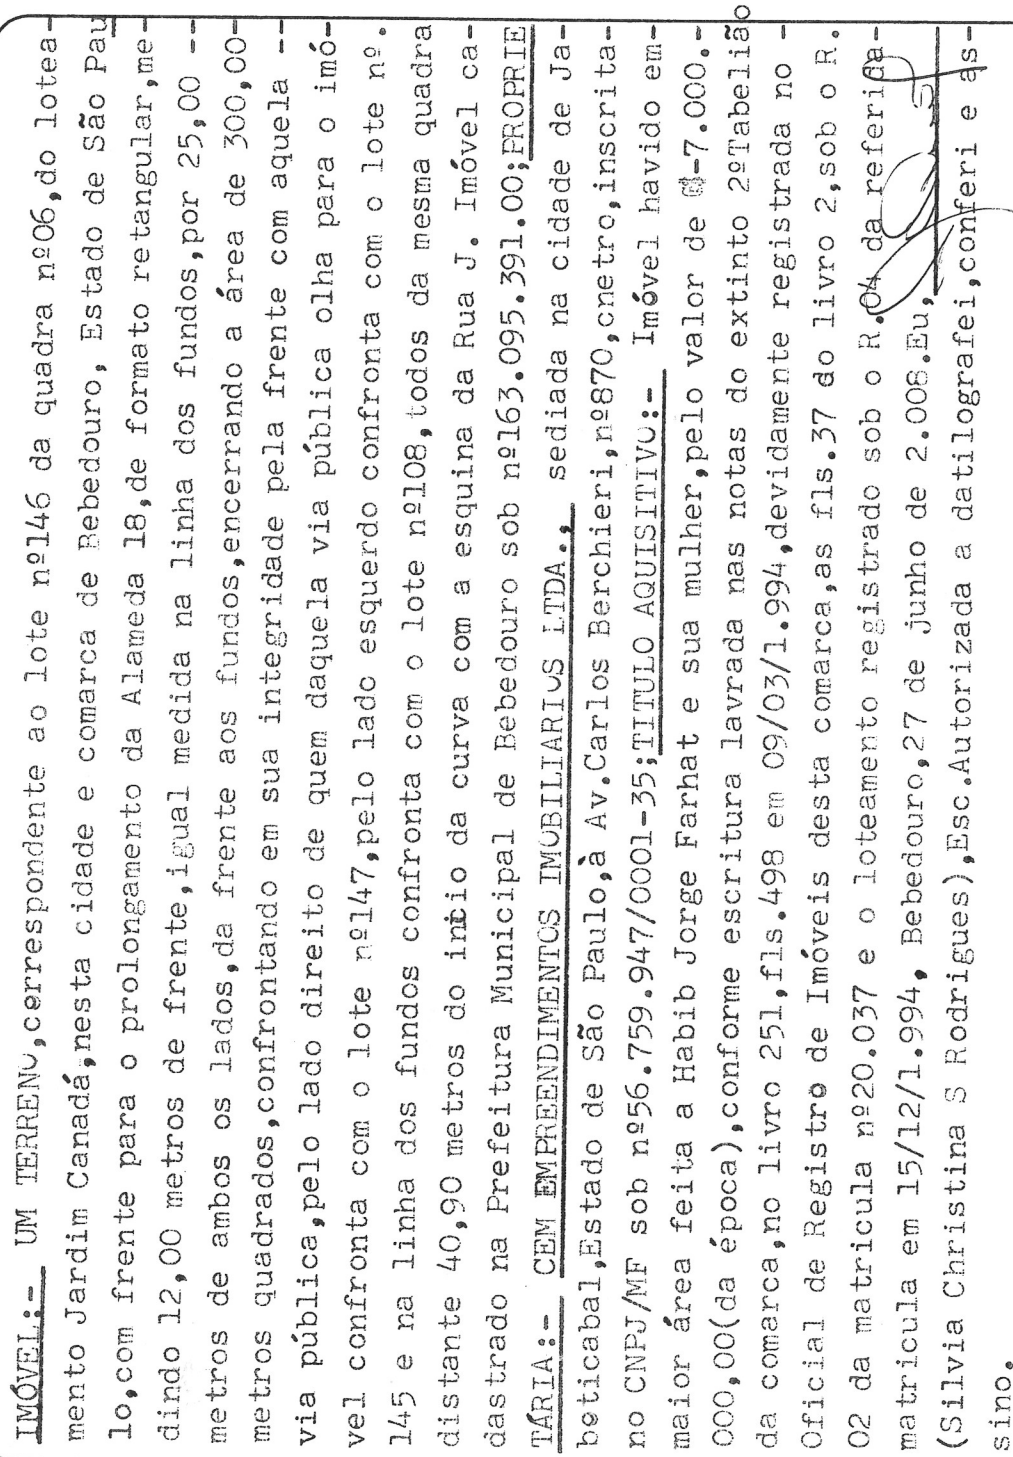 IMÓVEL:- UM TERRENO,cerrespondente ao lote nº146 da quadra nº06,do lotea-
mento Jardim Canadá,nesta cidade e comarca de Bebedouro, Estado de São Pau
lo,com frente para o prolongamento da Alameda 18,de formato retangular,me-
dindo 12,00 metros de frente,igual medida na linha dos fundos,por 25,00 --
metros de ambos os lados,da frente aos fundos,encerrando a área de 300,00-
metros quadrados,confrontando em sua integridade pela frente com aquela --
via pública,pelo lado direito de quem daquela via pública olha para o imó-
vel confronta com o lote nº147,pelo lado esquerdo confronta com o lote nº.
145 e na linha dos fundos confronta com o lote nº108,todos da mesma quadra
distante 40,90 metros do início da curva com a esquina da Rua J. Imóvel ca-
dastrado na Prefeitura Municipal de Bebedouro sob nº163.095.391.00;PROPRIE
TÁRIA:- CEM EMPREENDIMENTOS IMOBILIARIOS LTDA., sediada na cidade de Ja-
boticabal,Estado de São Paulo,à Av.Carlos Berchieri,nº870,cnetro,inscrita-
no CNPJ/MF sob nº56.759.947/0001-35;TITULO AQUISITIVO:- Imóvel havido em-
maior área feita a Habib Jorge Farhat e sua mulher,pelo valor de -7.000.-
000,00(da época),conforme escritura lavrada nas notas do extinto 2ºTabelião
da comarca,no livro 251,fls.498 em 09/03/1.994,devidamente registrada no
Oficial de Registro de Imóveis desta comarca,as fls.37 do livro 2,sob o R.
02 da matricula nº20.037 e o loteamento registrado sob o R.04 da referida-
matricula em 15/12/1.994, Bebedouro,27 de junho de 2.008.Eu,
(Silvia Christina S Rodrigues),Esc.Autorizada a datilografei,conferi e as-
sino.